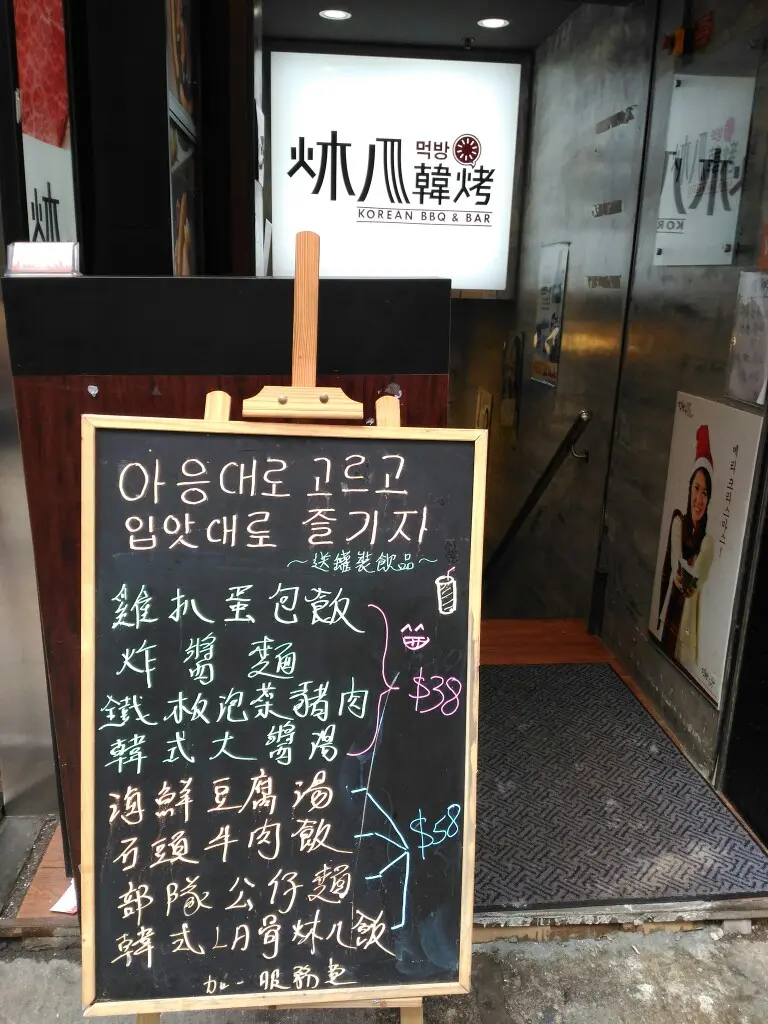 炑八 먹방 韓烤
KOREAN BBQ & BAR
아응대로 고르고
입앗대로 즐기자
~送罐裝飲品~
雞扒蛋包飯
炸醬麵
鐵板泡菜豬肉
韓式大醬湯
$38
海鮮豆腐湯
石頭牛肉飯
部隊公仔麵
韓式LA骨炑八飯
$58
加一服務費
메리 크리스마스!